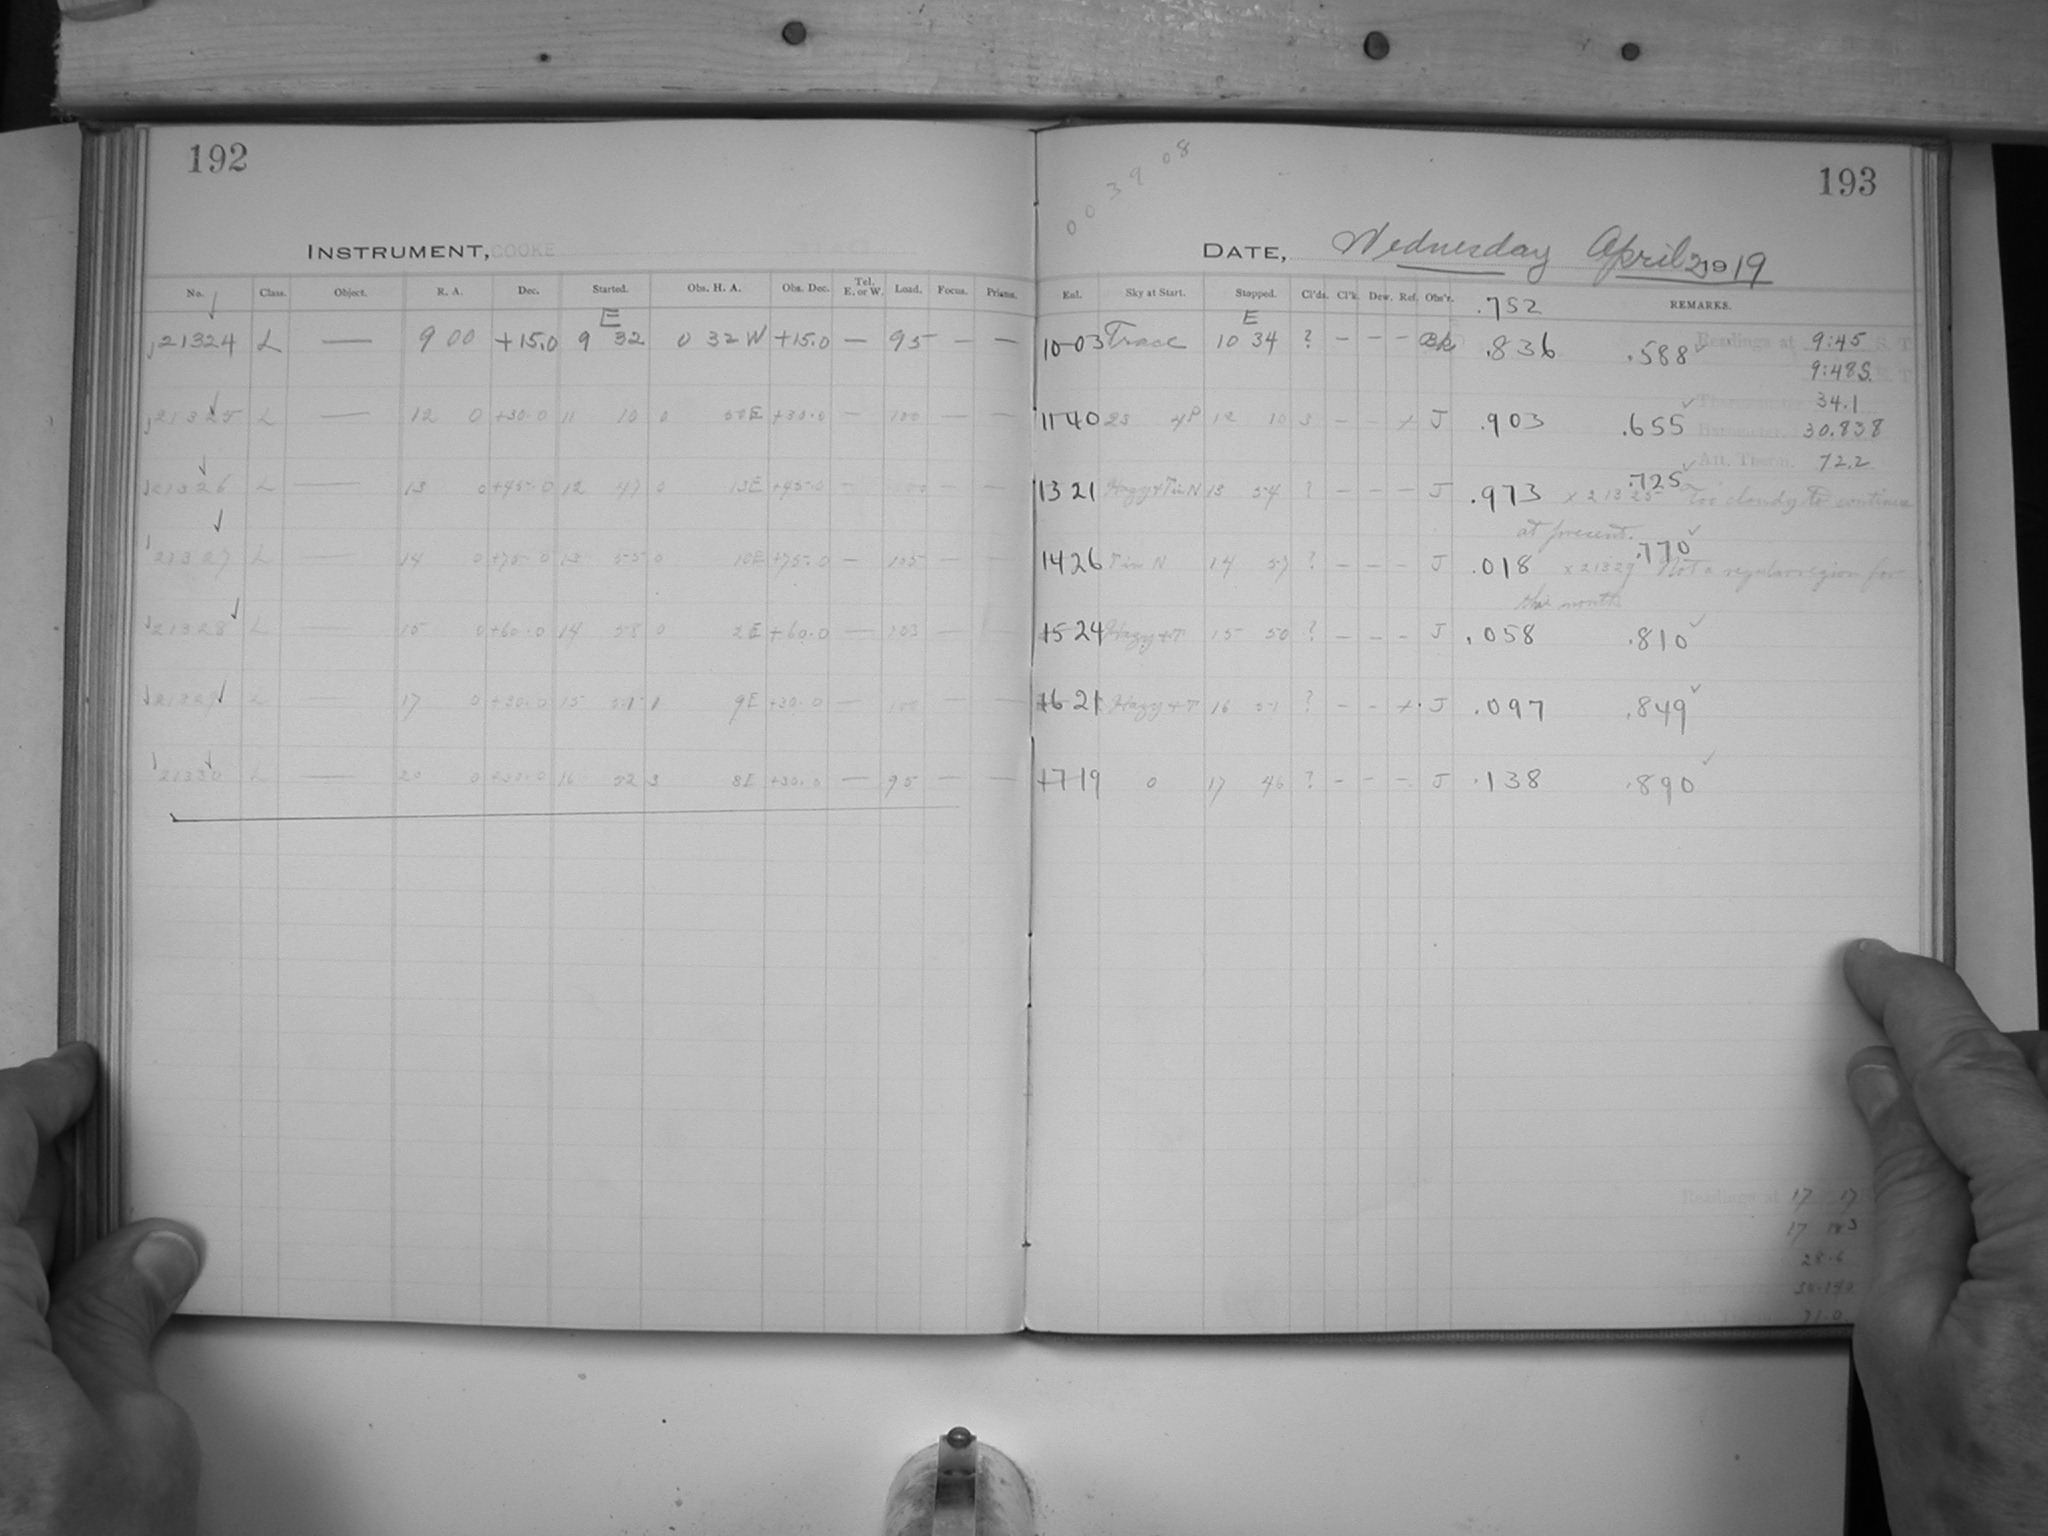 192
INSTRUMENT, COOKE
No. Class. Object. R. A. Dec. Started. Obs. H. A. Obs. Dec. Tel. E. or W. Load. Focus. Prisms.
E
21324 L — 9 00 +15.0 9 32 0 32 W +15.0 — 95 — —
21325 L — 12 0 +30.0 11 10 0 50E +30.0 — 100 — —
21326 L — 13 0 +45.0 12 47 0 13E +45.0 — 100 — —
21327 L — 14 0 +75.0 13 55 0 10E +75.0 — 105 — —
21328 L — 15 0 +60.0 14 58 0 2E +60.0 — 103 — —
21329 L — 17 0 +30.0 15 51 1 9E +30.0 — 100 — —
21330 L — 20 0 +30.0 16 52 3 8E +30.0 — 95 — —
003908
193
DATE, Wednesday April 2 1919
Exl. Sky at Start. Stopped. Cl'ds. Cl'k. Dew. Ref. Obs'r. .752 REMARKS.
E
10 03 Trace 10 34 ? - - - Bk .836 .588 Readings at 9:45 S. T
9:48 S. T
Thermometer 34.1
11 40 23 4P 12 10 3 - - + J .903 .655 Barometer. 30.838
Att. Therm. 72.2
13 21 Hazy + T in N 13 54 ? - - - J .973 .725 x 21325 Too cloudy to continue
at present.
14 26 T in N 14 57 ? - - - J .018 .770 x 21327 Not a regular region for
this month
15 24 Hazy + T 15 50 ? - - - J .058 .810
16 21 Hazy + T 16 51 ? - - + J .097 .849
17 19 0 17 46 ? - - - J .138 .890
Readings at 17 17
17 18
28.6
71.0